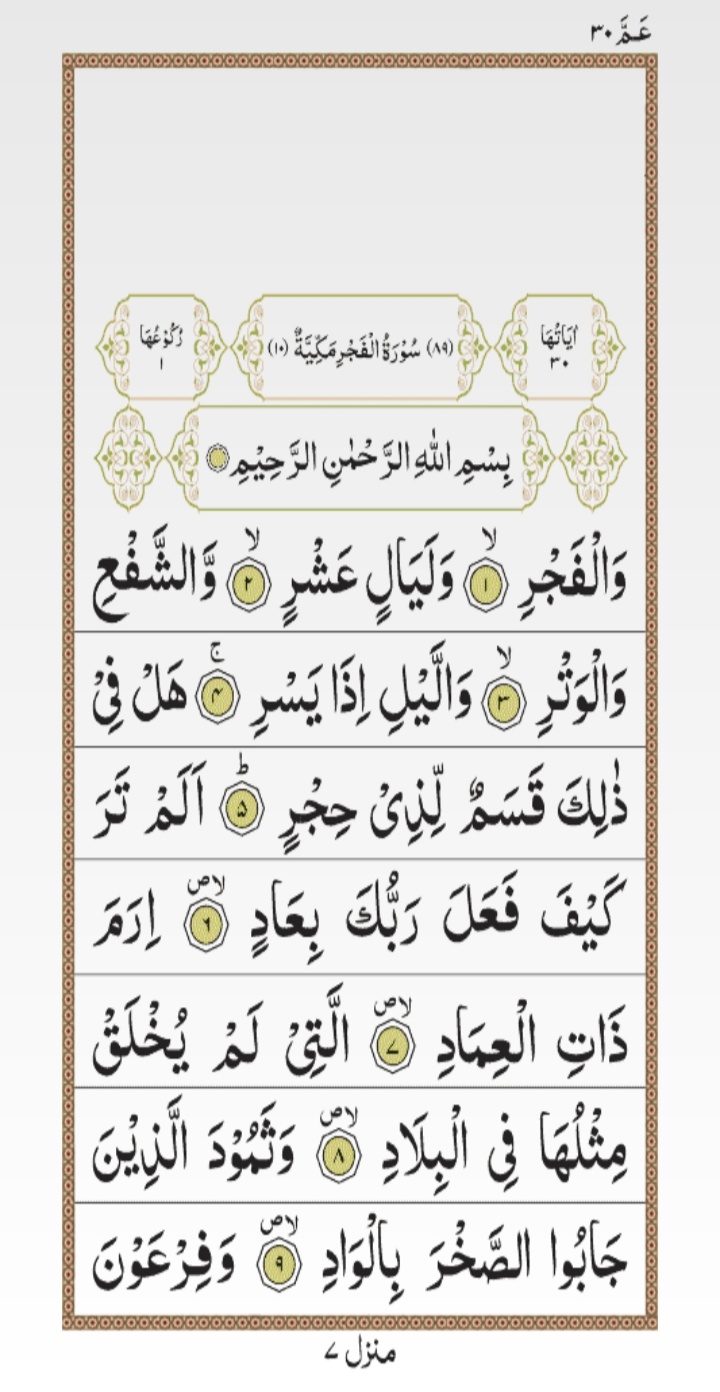 عَمَّ ۳۰
اٰيَاتُهَا ۳۰
(۸۹) سُوْرَةُ الْفَجْرِ مَكِّيَّةٌ (۱۰)
رُكُوْعُهَا ۱
بِسْمِ اللّٰهِ الرَّحْمٰنِ الرَّحِيْمِ
وَالْفَجْرِ ۙ‏﴿۱﴾ وَلَيَالٍ عَشْرٍ ۙ‏﴿۲﴾ وَّالشَّفْعِ
وَالْوَتْرِ ۙ‏﴿۳﴾ وَالَّيْلِ اِذَا يَسْرِ ۚ‏﴿۴﴾ هَلْ فِىْ
ذٰلِكَ قَسَمٌ لِّذِىْ حِجْرٍ ؕ‏﴿۵﴾ اَلَمْ تَرَ
كَيْفَ فَعَلَ رَبُّكَ بِعَادٍ لا ص ﴿۶﴾ اِرَمَ
ذَاتِ الْعِمَادِ لا ص ﴿۷﴾ الَّتِىْ لَمْ يُخْلَقْ
مِثْلُهَا فِى الْبِلَادِ لا ص ﴿۸﴾ وَثَمُوْدَ الَّذِيْنَ
جَابُوا الصَّخْرَ بِالْوَادِ لا ص ﴿۹﴾ وَفِرْعَوْنَ
منزل ۷